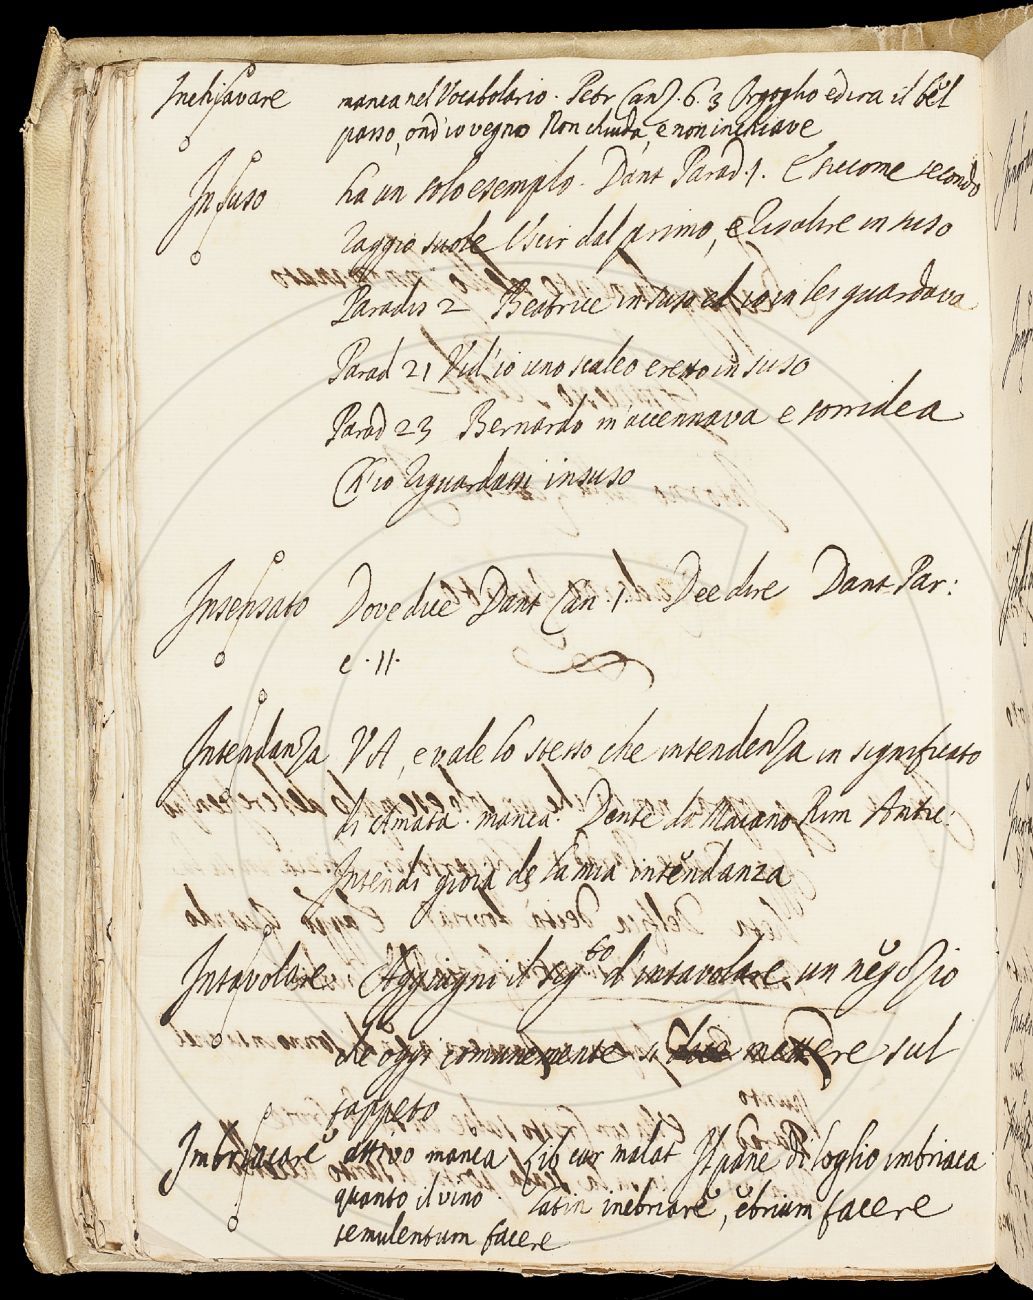 Inchiavare manca nel Vocabolario. Petr Canz. 6. 3 Orgoglio ed ira il bel
passo, ond'io vegno Non chiuda, e non inchiave
In suso ha un solo esempio. Dant Parad. 1. E siccome secondo
raggio suole Uscir dal primo, e Risalire in suso
Paradis 2 Beatrice in suso ed io in lei guardava
Parad 21 Vid'io uno scaleo eretto in suso
Parad 23 Bernardo m'accennava e sorridea
Ch'io riguardassi in suso
Insensato Dove dice Dant Can. 1. Dee dire Dant Par:
c. 11.
Intendanza VA, e vale lo stesso che intendenza in significato
di Amata. manca. Dante da Maiano Rim Antic:
Intendi gioia de la mia intendanza
Intavolare Aggiugni il sig.to d'intavolare un negozio
che oggi comunemente si mettere sul
tappeto
Imbriacare attivo manca Lib cur malat Il pane di loglio imbriaca
quanto il vino. Latin inebriare, ebrium facere
temulentum facere